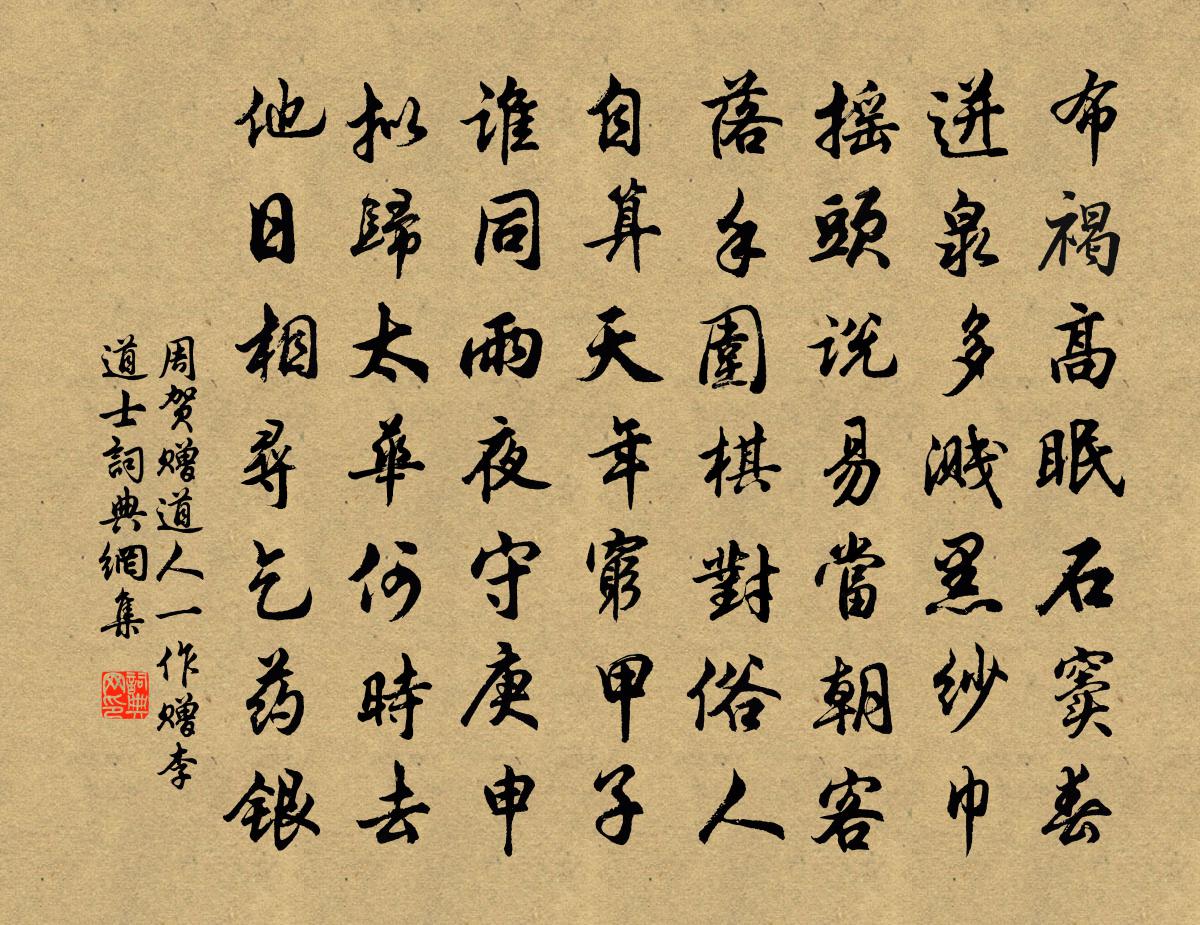 布褐高眠石窦春
迸泉多溅黑纱巾
摇頭说易當朝客
落手圍棋對俗人
自算天年窮甲子
谁同雨夜守庚申
拟歸太華何時去
他日相尋乞药銀
周贺赠道人一作赠李
道士詞典網集
詞典
网印